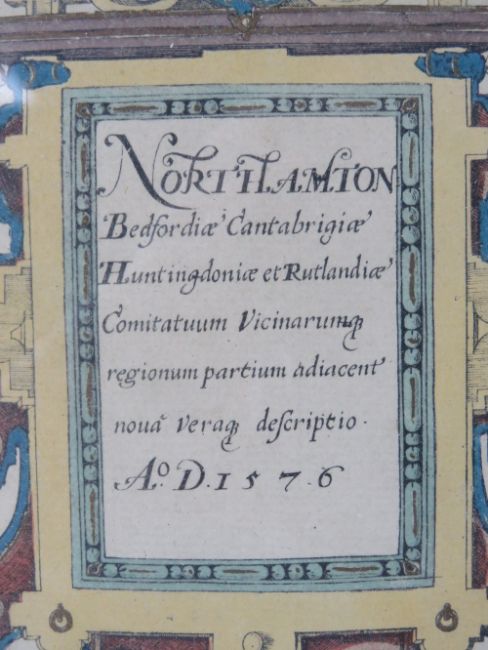 NORTHAMTON
Bedfordiæ Cantabrigiæ
Huntingdoniæ et Rutlandiæ
Comitatuum Vicinarumq̃
regionum partium adiacent
nouã veraq̃ descriptio.
Aº. D. 1 5 7. 6